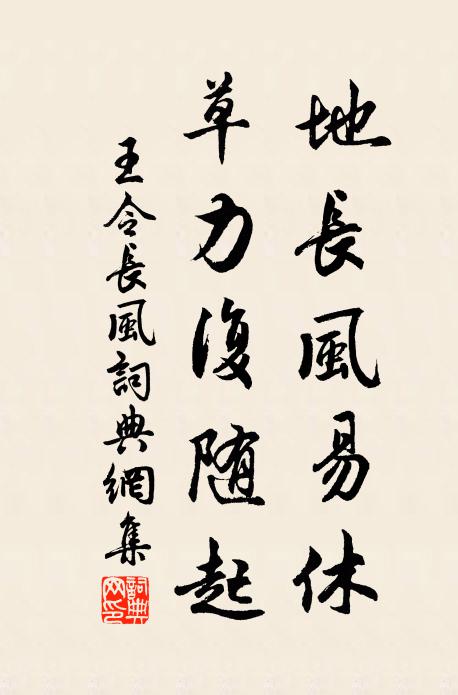 地長風易休
草力復随起
王令長風詞典網集
詞典网印